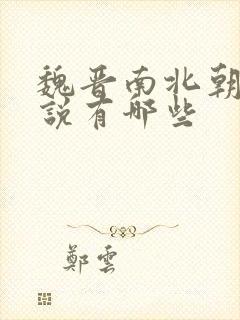 魏晋南北朝
說有哪些
鄭雲